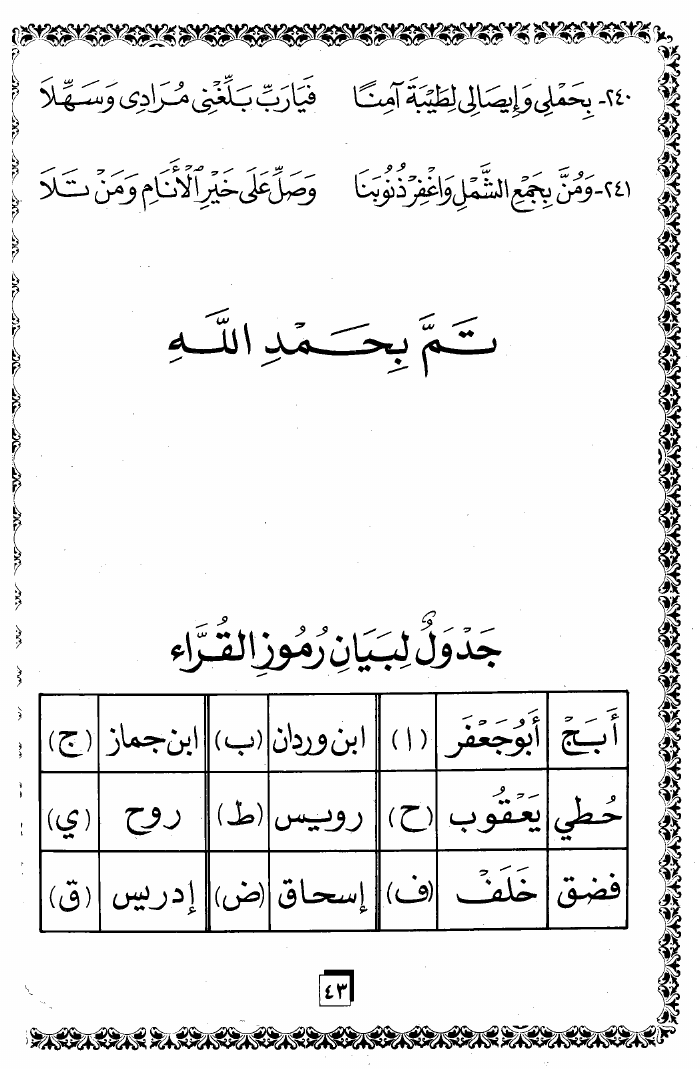 ٢٤٠- بِحَمْلِى وَإِيصَالِى لِطَيْبَةَ آمِنًا فَيَارَبِّ بَلِّغْنِى مُرَادِى وَسَهِّلَا
٢٤١- وَمُنَّ بِجَمْعِ الشَّمْلِ وَاغْفِرْ ذُنُوبَنَا وَصَلِّ عَلَى خَيْرِ الْأَنَامِ وَمَنْ تَلَا
تَمَّ بِحَمْدِ اللَّهِ
جَدْوَلٌ لِبَيَانِ رُمُوزِ الْقُرَّاء
أَبَجْ أَبُوجَعْفَر (ا) ابن وردان (ب) ابن جماز (ج)
حُطي يَعْقُوب (ح) رويس (ط) روح (ي)
فضق خَلَفْ (ف) إسحاق (ض) إدريس (ق)
٤٣